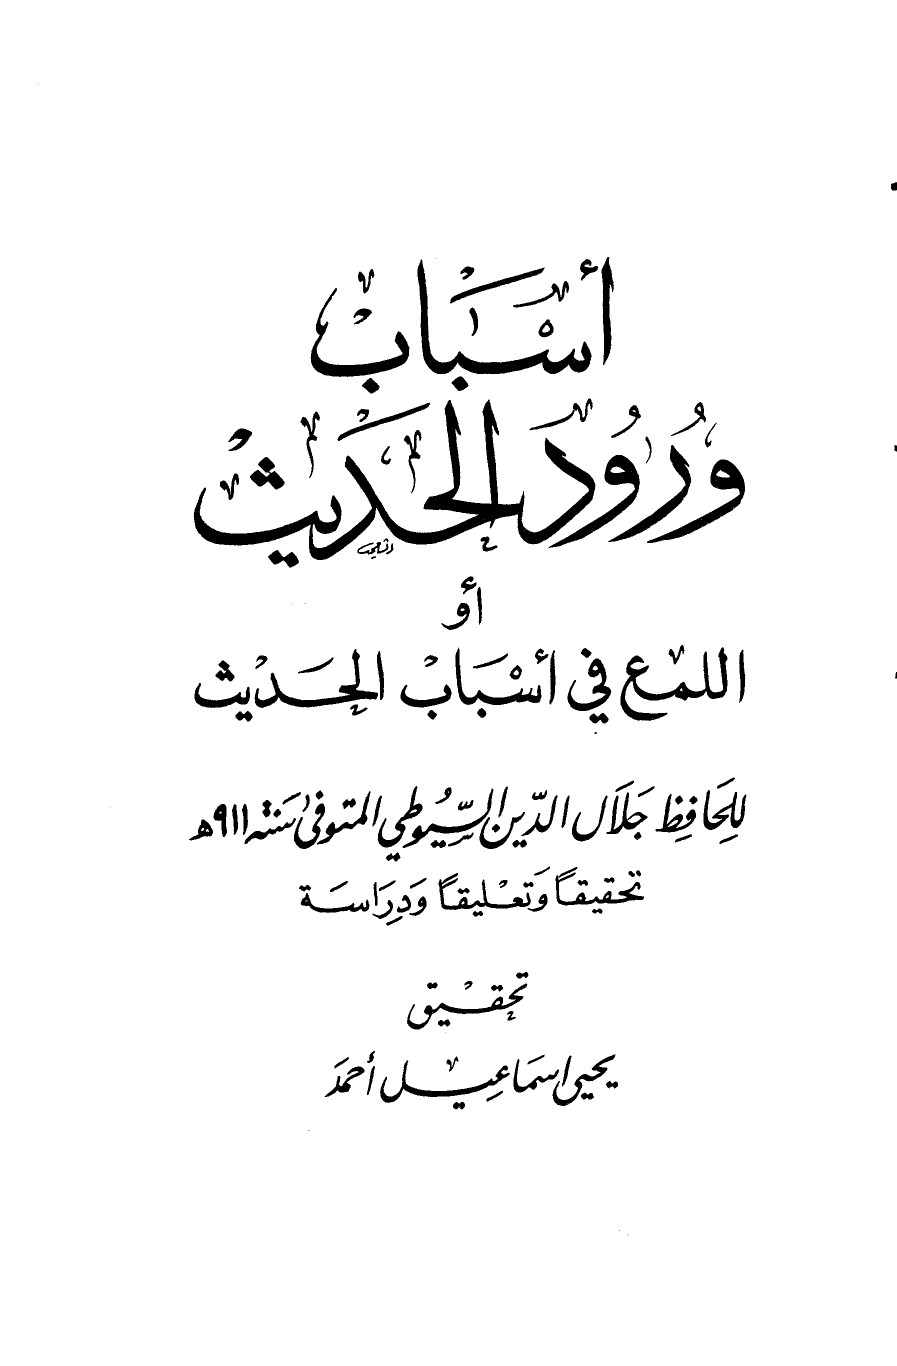 أسباب
ورود الحديث
أو
اللمع في أسباب الحديث
للحافظ جلال الدين السيوطي المتوفى سنة ٩١١ھ
تحقيقاً وتعليقاً ودراسة
تحقيق
يحيى اسماعيل أحمد